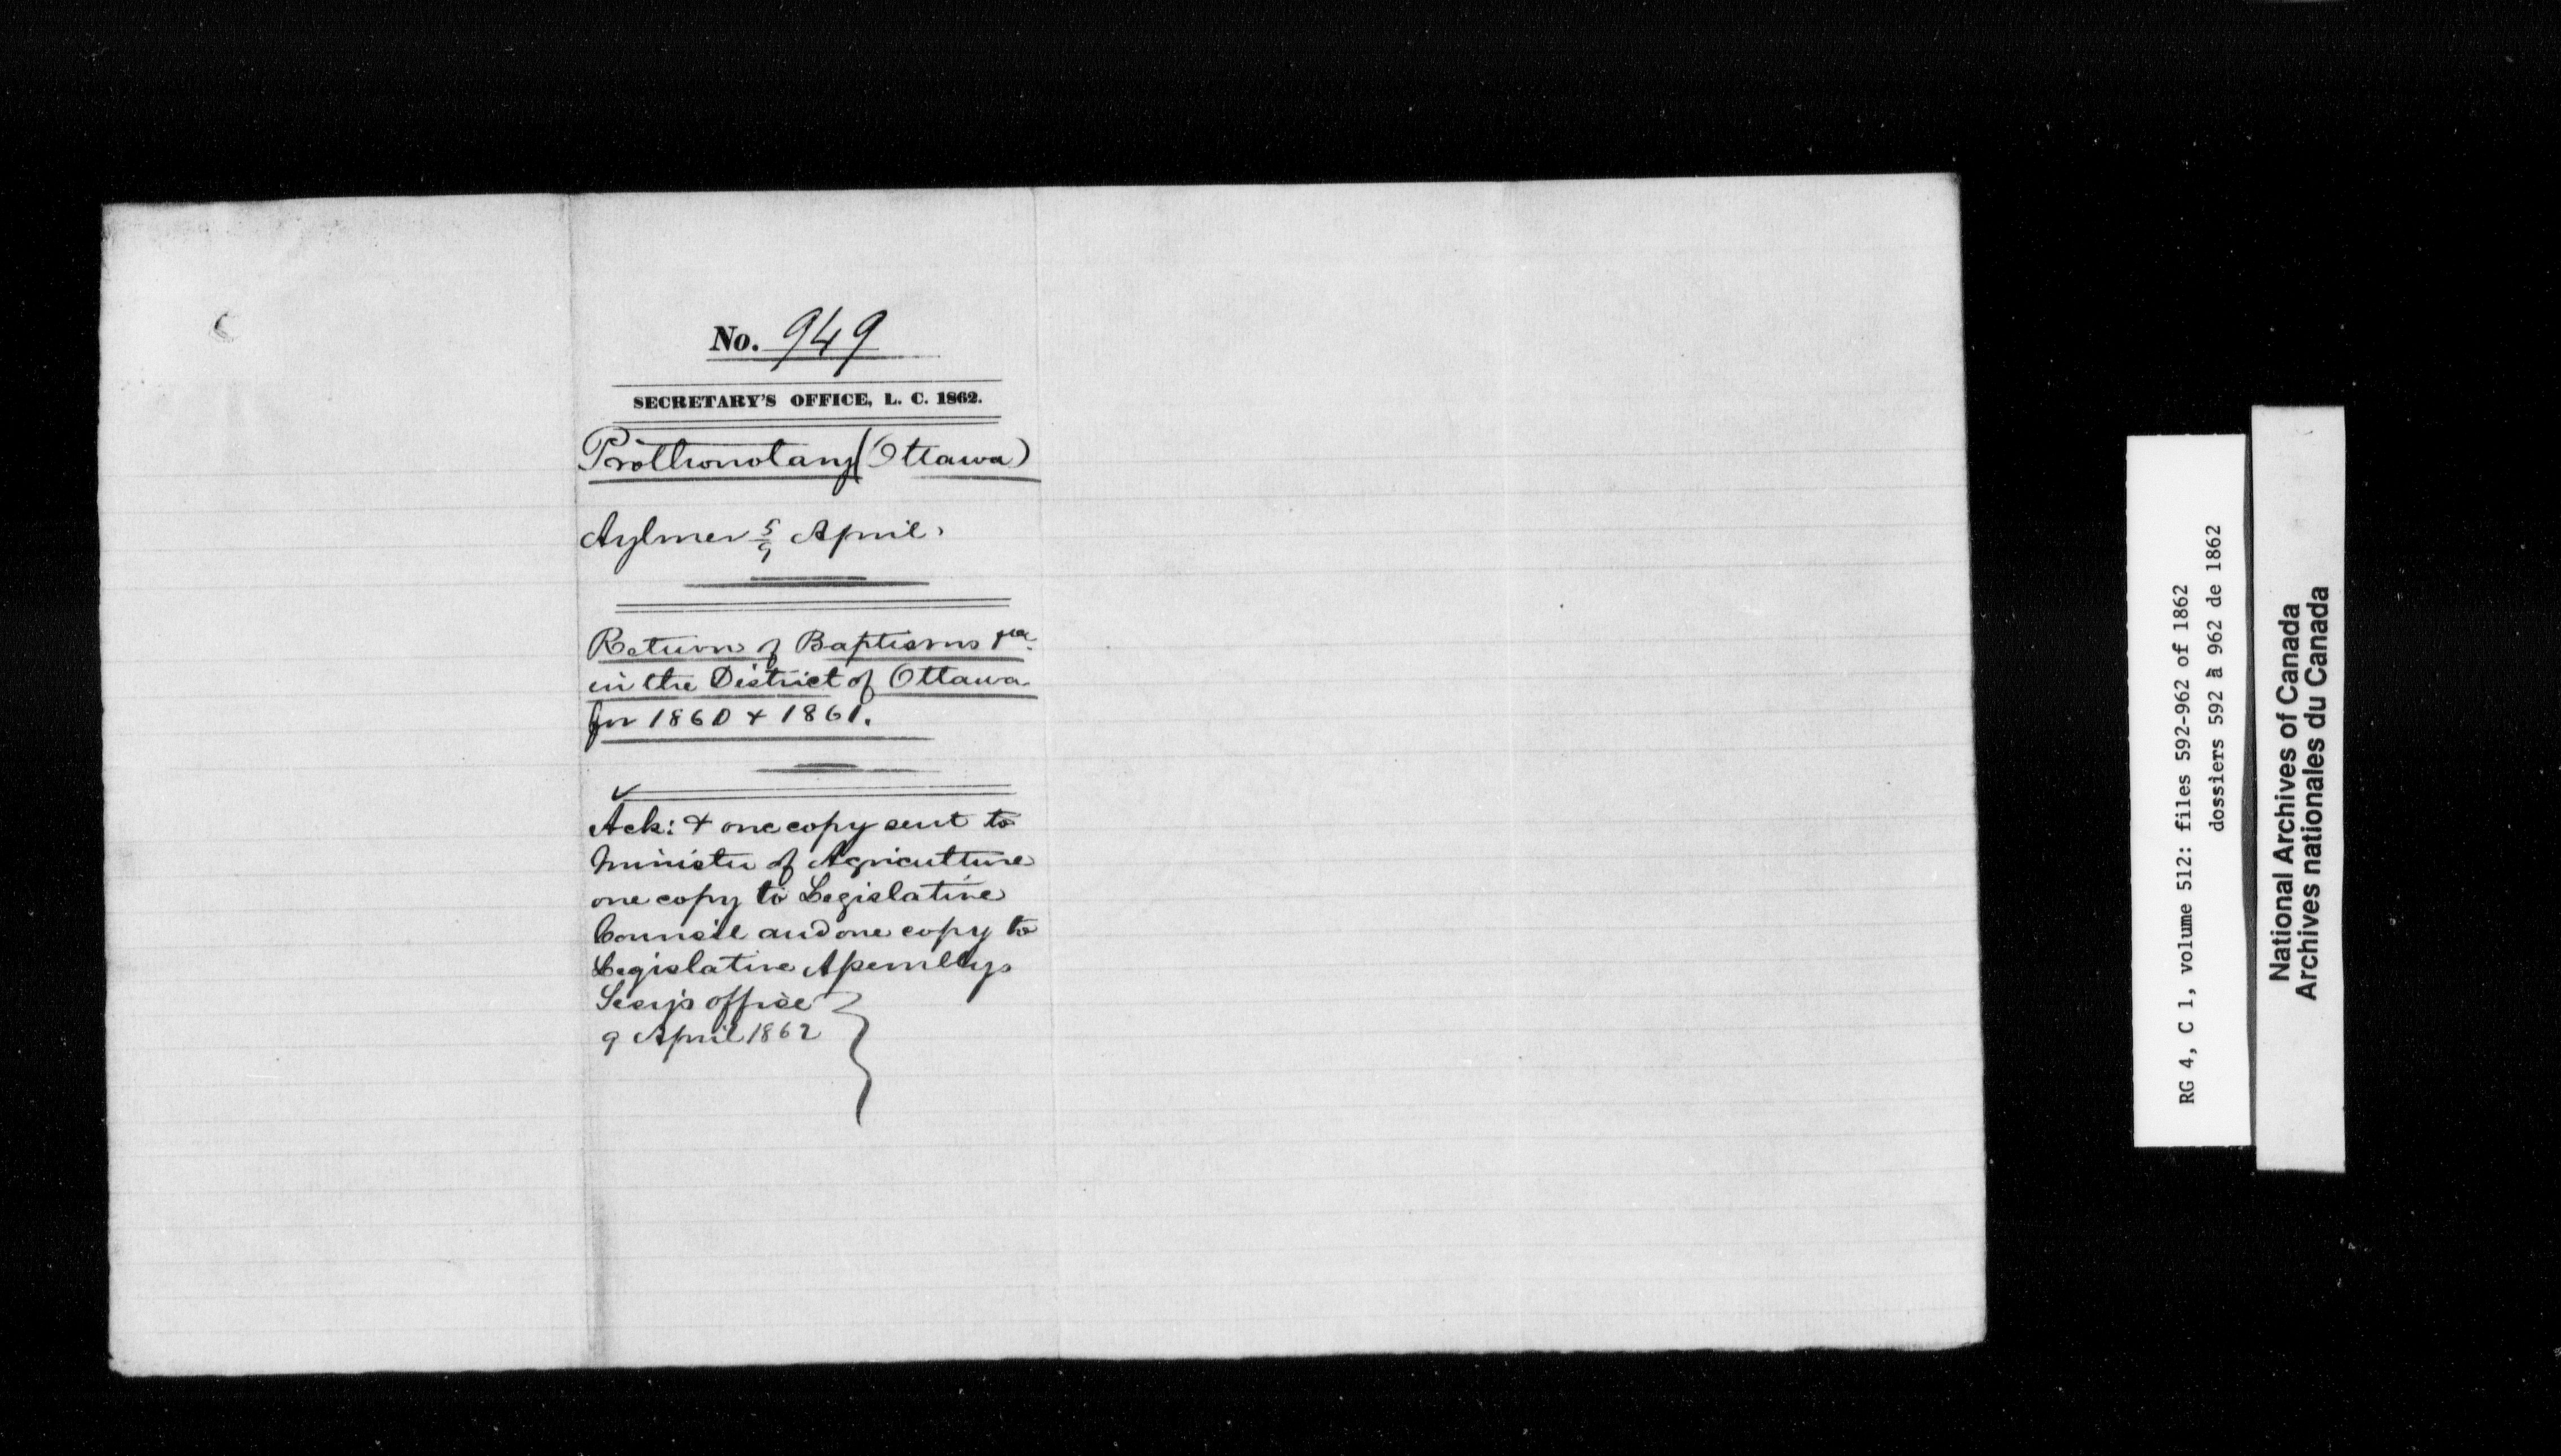 No. 949
SECRETARY'S OFFICE, L. C. 1862.
Prothonotary (Ottawa)
Aylmer 5/9 April.
Return of Baptisms &ca.
in the District of Ottawa
for 1860 & 1861.
Ack: & one copy sent to
Minister of Agriculture
one copy to Legislative
Council and one copy to
Legislative Assembly
Secy's office
9 April 1862
RG 4, C 1, volume 512: files 592-962 of 1862
dossiers 592 à 962 de 1862
National Archives of Canada
Archives nationales du Canada